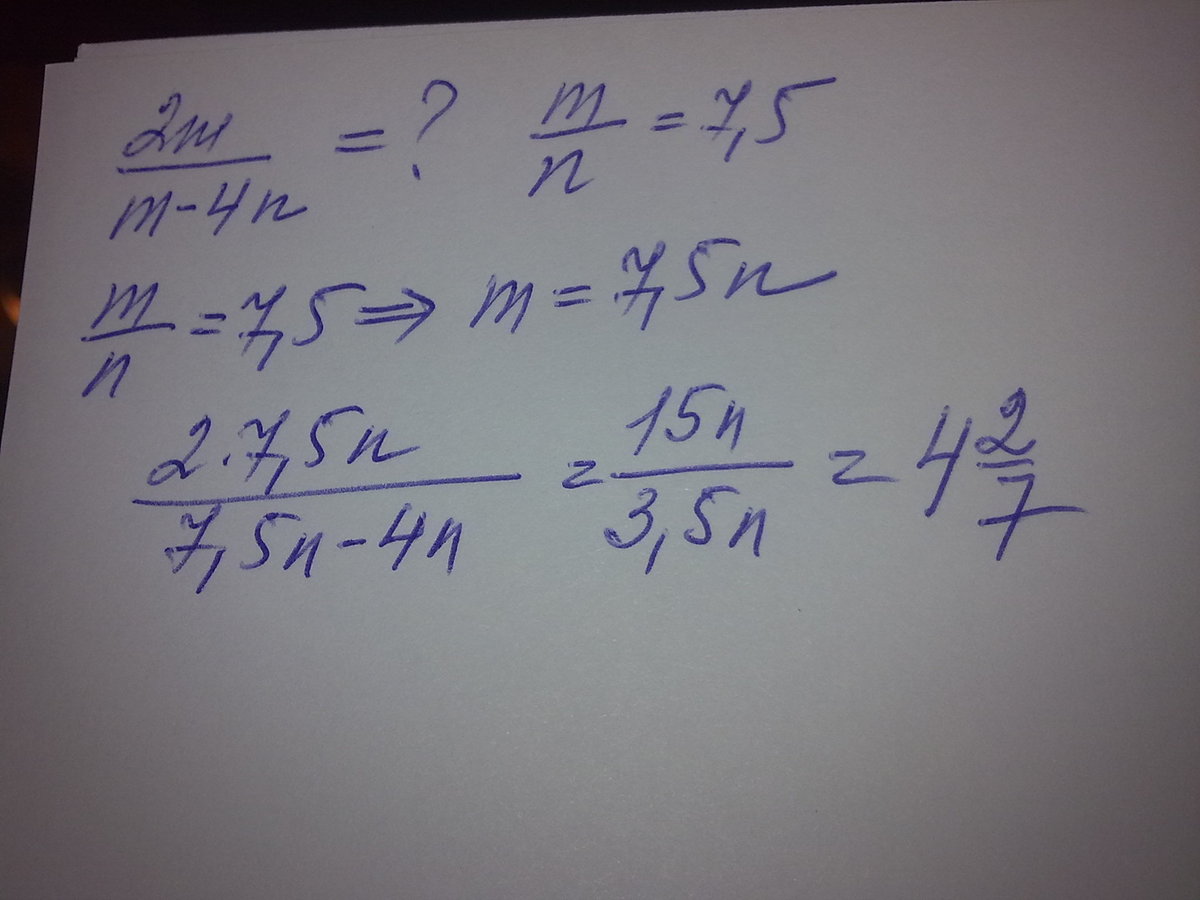 2m/(m-4n) = ? m/n = 7,5
m/n = 7,5 ⇒ m = 7,5n
(2·7,5n)/(7,5n-4n) = 15n/3,5n = 4 2/7